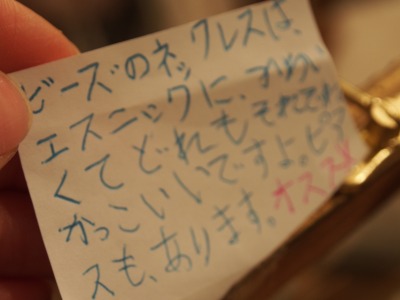 ビーズのネックレスは、
エスニックに、かわい
くてどれもそれぞれ
かっこいいですよ。ピア
スも、あります。オススメ